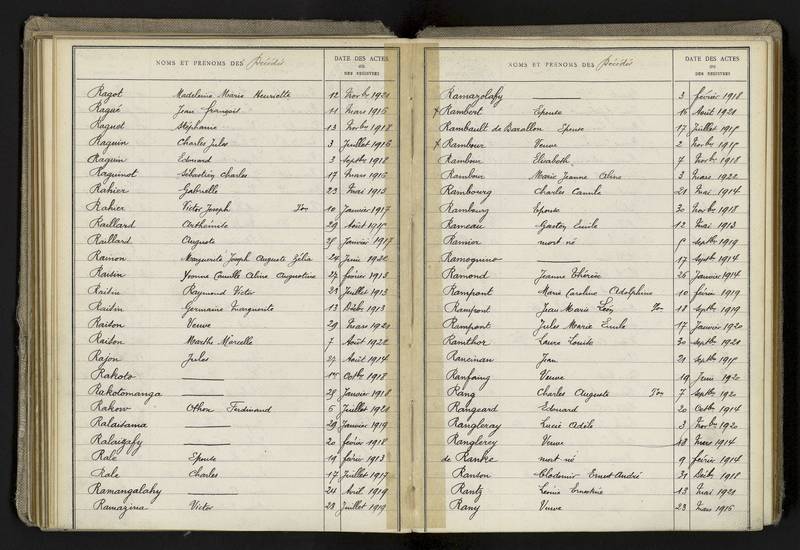 NOMS ET PRÉNOMS DES Décédés
DATE DES ACTES
OU
DES REGISTRES
Ragot Madeleine Marie Henriette 12 Novbre 1921
Ragué Jean François 11 Mars 1916
Raguet Stéphanie 13 Novbre 1918
Raguin Charles Jules 3 Juillet 1916
Raguin Edouard 3 Septbre 1918
Raguinot Sébastien Charles 17 Mars 1916
Rahier Gabrielle 23 Mai 1913
Rahier Victor Joseph Ton 10 Janvier 1917
Raillard Arthémise 29 Août 1915
Raillard Auguste 25 Janvier 1917
Raimon Marguerite Joseph Auguste Zélia 24 Juin 1920
Raisin Yvonne Camille Aline Augustine 27 février 1913
Raisin Raymond Victor 23 Juillet 1913
Raisin Germaine Marguerite 13 Décbre 1913
Raison Veuve 29 Mars 1920
Raison Marthe Marcelle 7 Août 1922
Rajon Jules 27 Août 1914
Rakoto 17 Octbre 1918
Rakotomanga 28 Janvier 1918
Rakow Othon Ferdinand 6 Juillet 1920
Ralaisama 29 Janvier 1919
Ralaizafy 20 février 1918
Rale Epouse 19 février 1913
Rale Charles 17 Juillet 1917
Ramangalahy 24 Avril 1919
Ramazina Victor 28 Juillet 1919
NOMS ET PRÉNOMS DES Décédés
DATE DES ACTES
OU
DES REGISTRES
Ramazolafy 3 février 1918
Rambert Epouse 16 Août 1921
Rambault de Barallon Epouse 17 Juillet 1915
Rambour Veuve 2 Novbre 1915
Rambour Elisabeth 7 Novbre 1918
Rambour Marie Jeanne Aline 3 Mars 1922
Rambourg Charles Camille 21 Mai 1914
Rambourg Epouse 30 Novbre 1918
Rameau Gaston Emile 12 Mai 1913
Ramier mort né 5 Septbre 1919
Ramognino 17 Septbre 1914
Ramond Jeanne Thérèse 26 Janvier 1914
Rampont Marie Caroline Adolphine 10 février 1919
Rampont Jean Marie Léon Ton 18 Septbre 1919
Rampont Jules Marie Emile 17 Janvier 1920
Ramthor Laure Louise 30 Septbre 1920
Rancinan Jean 21 Septbre 1915
Ranfaing Veuve 19 Juin 1920
Rang Charles Auguste Ton 7 Septbre 1920
Rangeard Edouard 20 Octbre 1914
Rangleray Lucie Adèle 3 Novbre 1920
Ranglerey Veuve 18 Mars 1914
de Ranke mort né 9 février 1914
Ranson Clodomir Ernest André 31 Décbre 1918
Rantz Léonie Ernestine 13 Mai 1921
Rany Veuve 23 Mars 1916